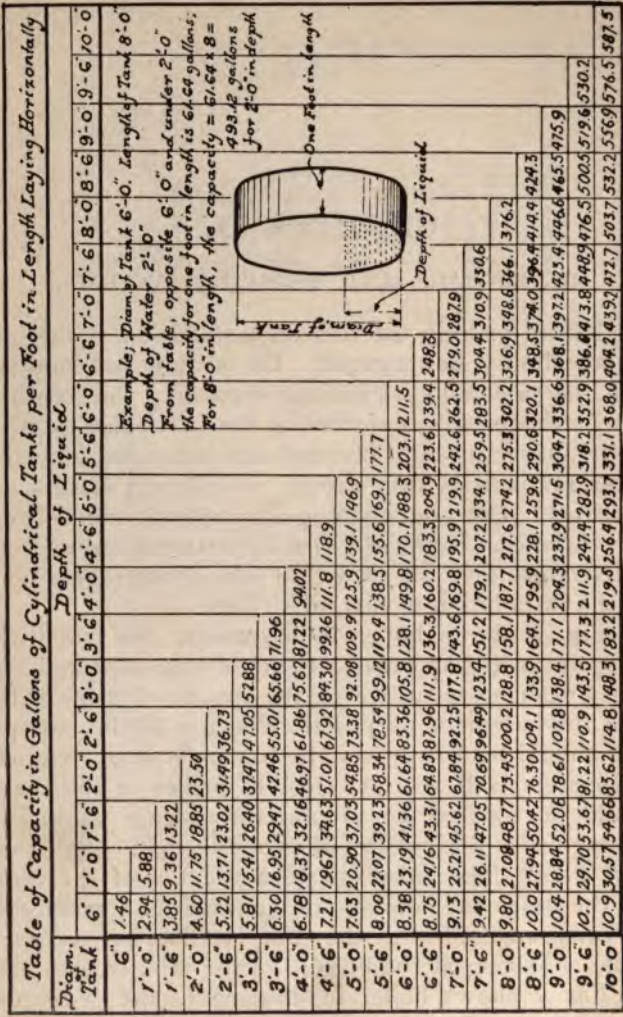 Table of Capacity in Gallons of Cylindrical Tanks per Foot in Length Laying Horizontally
Diam. of Tank Depth of Liquid
6" 1'-0" 1'-6" 2'-0" 2'-6" 3'-0" 3'-6" 4'-0" 4'-6" 5'-0" 5'-6" 6'-0" 6'-6" 7'-0" 7'-6" 8'-0" 8'-6" 9'-0" 9'-6" 10'-0"
6" 1.46
1'-0" 2.94 5.88
1'-6" 3.85 9.36 13.22
2'-0" 4.60 11.75 18.85 23.50
2'-6" 5.22 13.71 23.02 31.49 36.73
3'-0" 5.81 15.41 26.40 37.47 47.05 52.88
3'-6" 6.30 16.95 29.47 42.46 55.01 65.66 71.96
4'-0" 6.78 18.37 32.16 46.97 61.86 75.62 87.22 94.02
4'-6" 7.21 19.67 34.63 51.01 67.92 84.30 99.26 111.8 118.9
5'-0" 7.63 20.90 37.03 54.85 73.38 92.08 109.9 125.9 139.1 146.9
5'-6" 8.00 22.07 39.23 58.34 78.54 99.12 119.4 138.5 155.6 169.7 177.7
6'-0" 8.38 23.19 41.36 61.64 83.36 105.8 128.1 149.8 170.1 188.3 203.1 211.5
6'-6" 8.75 24.16 43.31 64.85 87.96 111.9 136.3 160.2 183.3 204.9 223.6 239.4 248.3
7'-0" 9.13 25.21 45.62 67.84 92.25 117.8 143.6 169.8 195.9 219.9 242.6 262.5 279.0 287.9
7'-6" 9.42 26.11 47.05 70.69 96.49 123.4 151.2 179.1 207.2 234.1 259.5 283.5 304.4 310.9 330.6
8'-0" 9.80 27.08 48.77 73.45 100.2 128.8 158.1 187.7 217.6 274.2 275.3 302.2 326.9 348.6 366.1 376.2
8'-6" 10.0 27.94 50.42 76.30 104.1 133.9 164.7 195.9 228.1 259.6 290.6 320.1 348.5 374.0 396.4 414.4 424.3
9'-0" 10.4 28.84 52.06 78.61 107.8 138.4 171.1 204.3 237.9 271.5 304.7 336.6 368.1 397.2 423.4 446.6 465.5 475.9
9'-6" 10.7 29.70 53.67 81.22 110.9 143.5 177.3 211.9 247.4 282.9 318.2 352.9 386.6 413.8 448.9 476.5 500.5 519.6 530.2
10'-0" 10.9 30.57 54.66 83.62 114.8 148.3 183.2 219.5 256.4 293.7 331.1 368.0 404.2 439.2 472.7 503.7 532.2 556.9 576.5 587.5
Example; Diam. of Tank 6'-0". Length of Tank 8'-0"
Depth of Water 2'-0"
From table, opposite 6'-0" and under 2'-0"
the capacity for one foot in length is 61.64 gallons;
For 8'-0" in length, the capacity = 61.64 x 8 =
493.12 gallons
for 2'-0" in depth
One Foot in Length
Diam. of Tank
Depth of Liquid